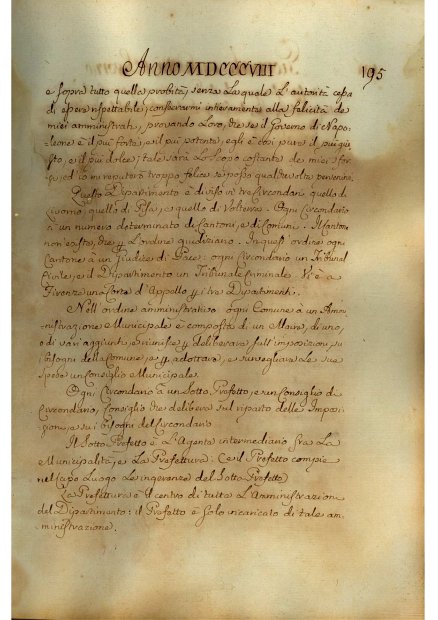 Anno MDCCCVIII 195
e sopra tutto quella probità, senza la quale l'autorità cessa
di essere rispettabile; consecrarmi intieramente alla felicità de
miei amministrati, provando loro, che se il Governo di Napo-
leone è il più forte, e il più potente, egli è così pure il più giu-
sto, e il più dolce; tale sarà lo scopo costante de miei sfor-
zi, ed io mi reputerò troppo felice se posso qualche volta pervenirvi.
Questo Dipartimento è diviso in tre Circondarj quello di
Livorno, quello di Pisa, e quello di Volterra. Ogni Circondario
à un numero determinato di Cantoni, e di Comuni. Il Cantone
non esiste, che per l'ordine giudiziario. In quest'ordine ogni
Cantone à un Giudice di Pace: ogni Circondario un Tribunal
Civile, e il Dipartimento un Tribunale Criminale. Vi è a
Firenze una Corte d'Appello per i tre Dipartimenti.
Nell'ordine amministrativo ogni Comune à un Ammi-
nistrazione Municipale è composta di un Maire, di uno,
o di varj aggiunti, e riunisce per deliberare sull'imposizioni, su
i bisogni della Comune, e per adottare, e sorvegliare le sue
spese un Consiglio Municipale.
Ogni Circondario à un Sotto Prefetto, e un Consiglio di
Circondario, Consiglio che delibera sul riparto delle Imposi-
zioni, e su i bisogni del Circondario.
Il Sotto Prefetto è l'Agente intermediario fra la
Municipalità, e la Prefettura. E il Prefetto compie
nel Capo Luogo le ingerenze del Sotto Prefetto.
La Prefettura è il centro di tutta l'Amministrazione
del Dipartimento: il Prefetto è solo incaricato di tale am-
ministrazione.